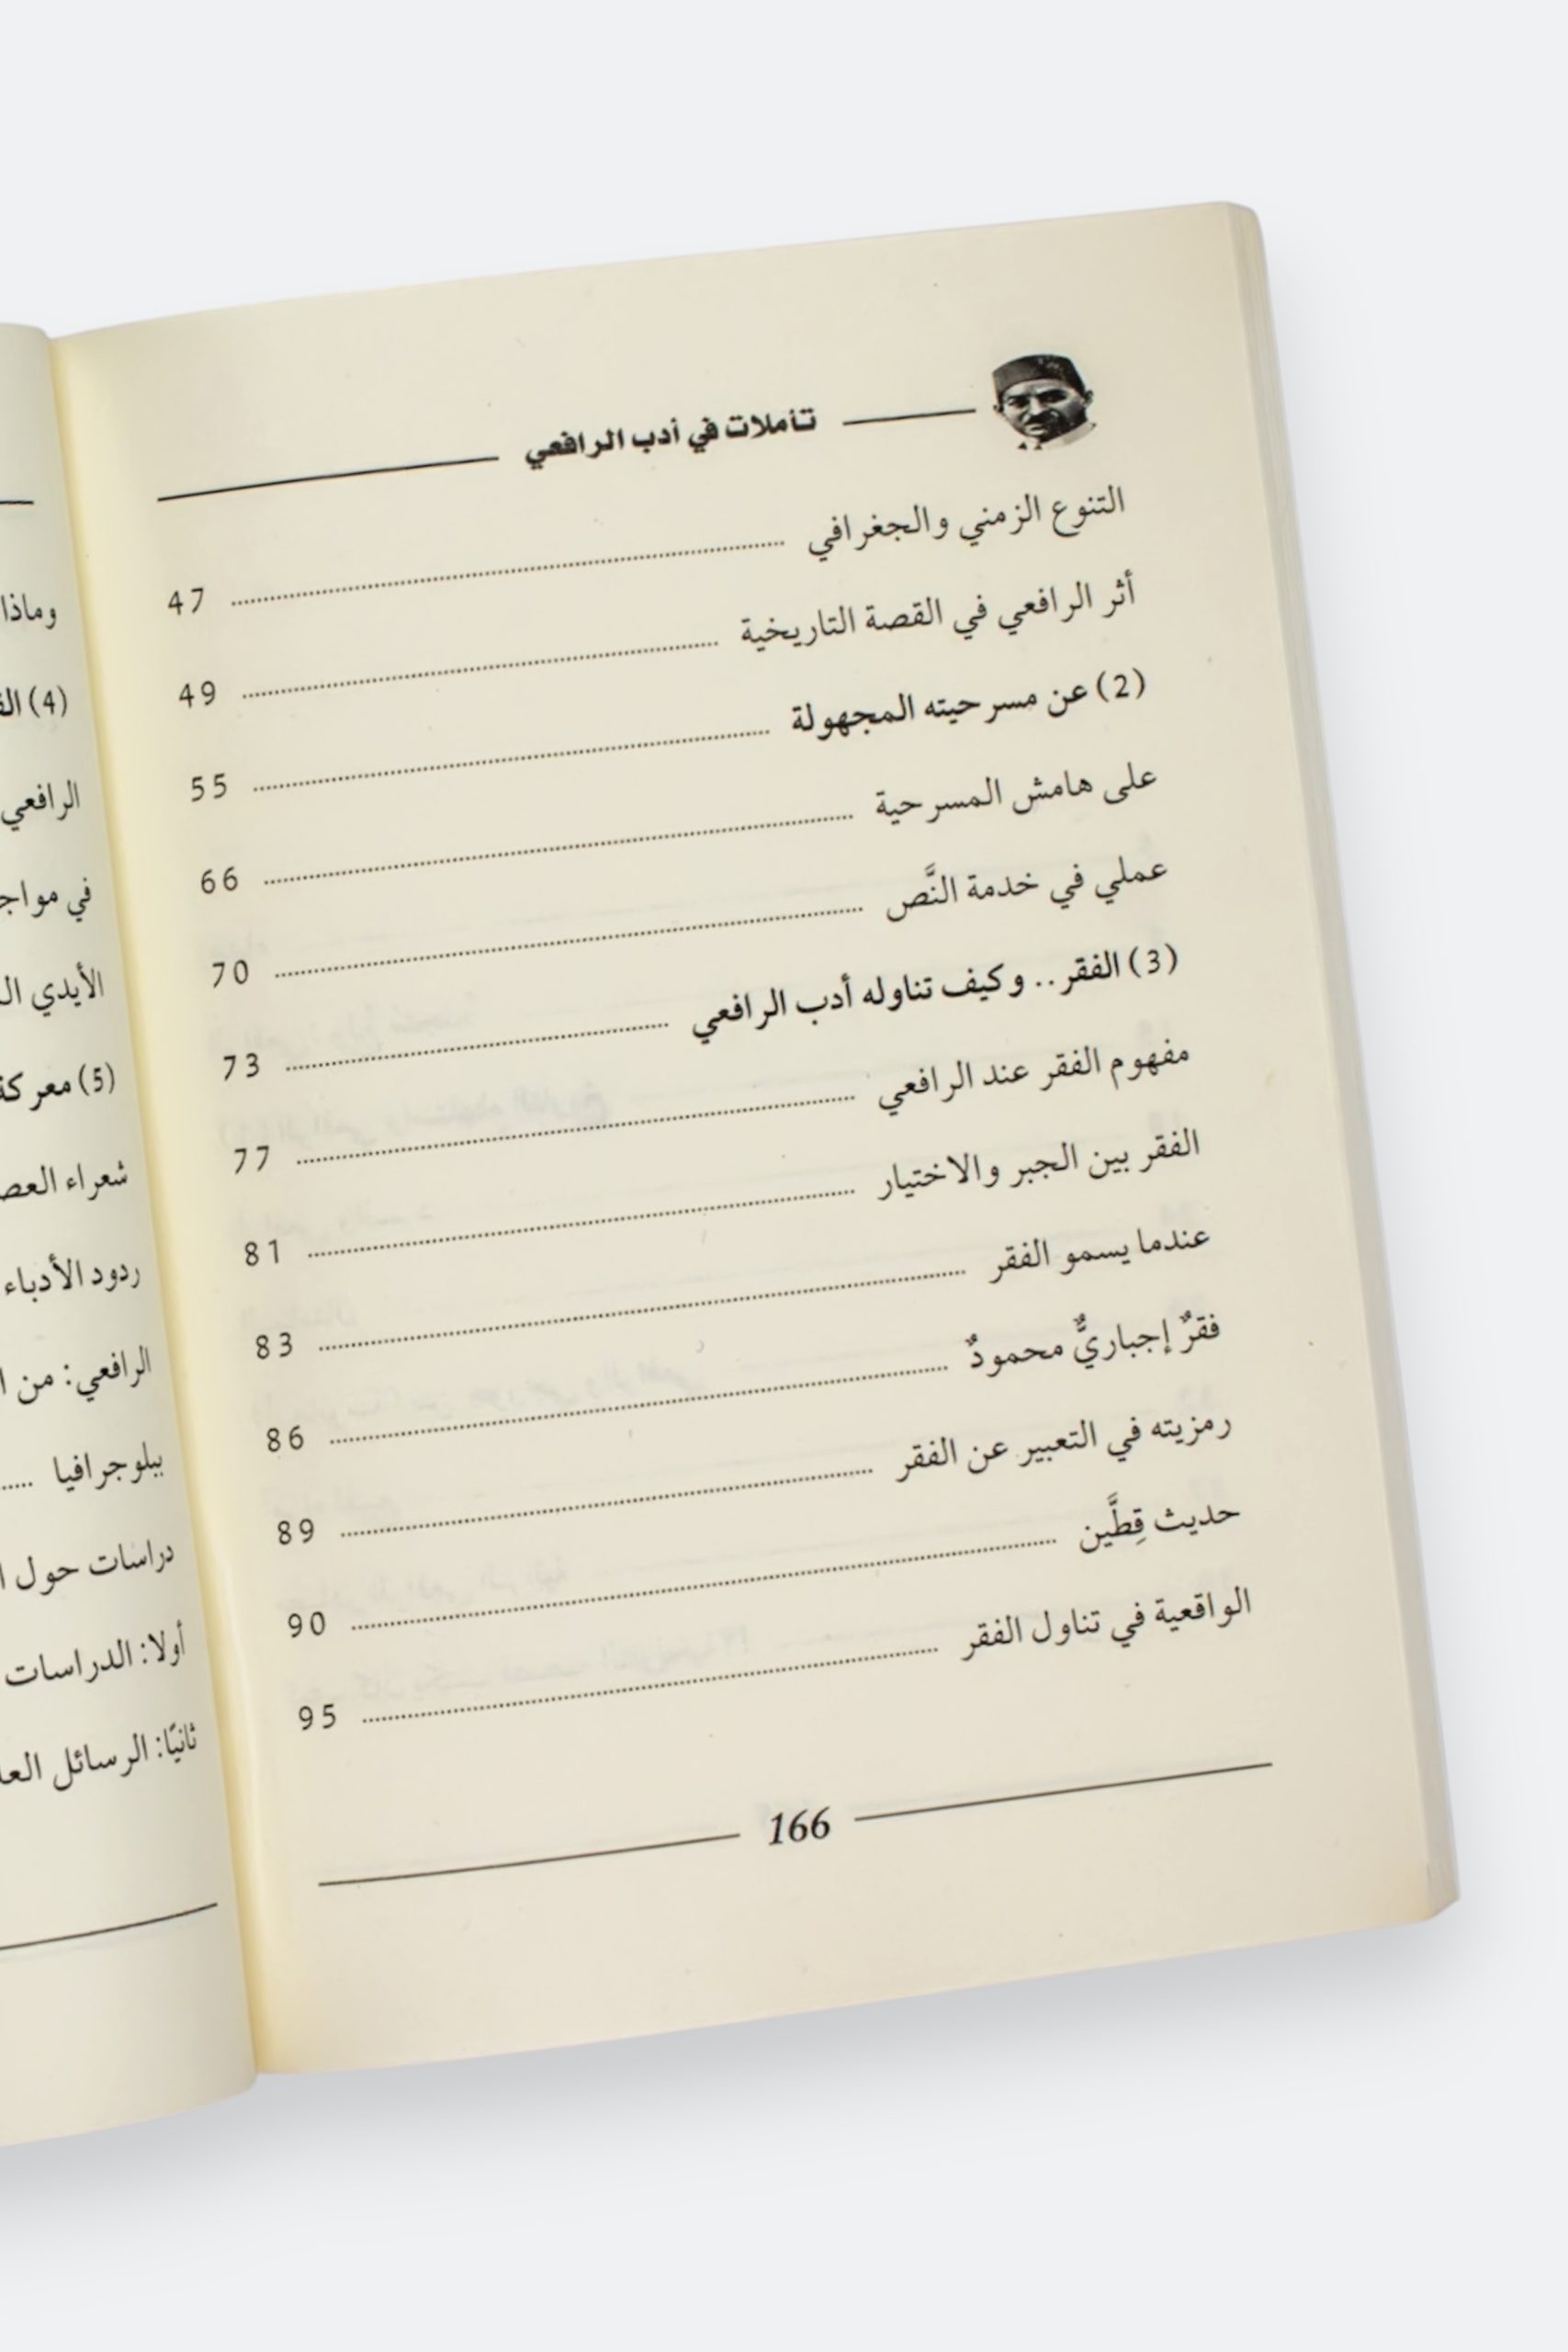 تأملات في أدب الرافعي
التنوع الزمني والجغرافي ........ 47
أثر الرافعي في القصة التاريخية ........ 49
(2) عن مسرحيته المجهولة ........ 55
على هامش المسرحية ........ 66
عملي في خدمة النَّص ........ 70
(3) الفقر.. وكيف تناوله أدب الرافعي ........ 73
مفهوم الفقر عند الرافعي ........ 77
الفقر بين الجبر والاختيار ........ 81
عندما يسمو الفقر ........ 83
فقرٌ إجباريٌّ محمودٌ ........ 86
رمزيته في التعبير عن الفقر ........ 89
حديث قِطَّين ........ 90
الواقعية في تناول الفقر ........ 95
166
وماذا
(4)
الرافعي
في
الأيدي
(5) معركة
شعراء
ردود الأدباء
الرافعي: من
ببلوجرافيا ....
دراسات حول
أولا: الدراسات
ثانيًا: الرسائل